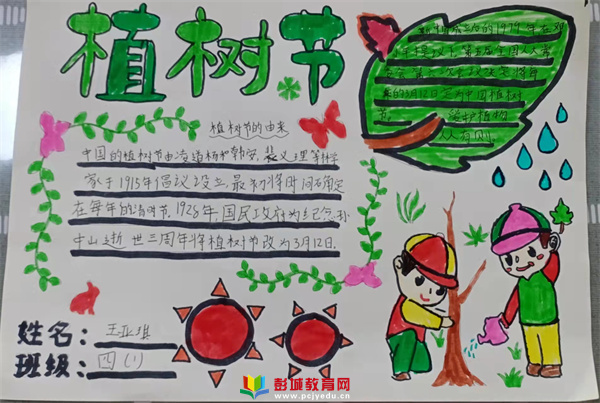 植树节
新中国成立后的1979年在邓
小平提议下，第五届全国人大常
委会第六次会议决定将每
年的3月12日定为中国植树
节。 爱护植物
人人有则
植树节的由来
中国的植树节由凌道扬和韩安、裴义理等林学
家于1915年倡议设立，最初将时间确定
在每年的清明节。1928年，国民政府为纪念孙
中山逝世三周年将植树节改为3月12日.
姓名：王亚琪
班级：四（1）
彭城教育网
www.pcjyedu.cn